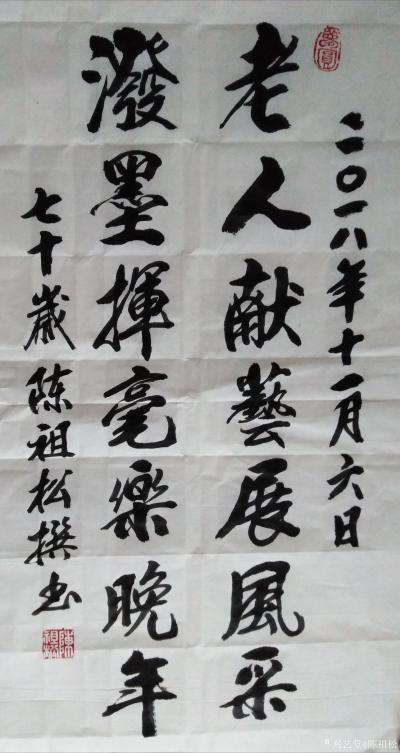 二〇一八年十一月六日
老人献藝展風采
潑墨揮毫樂晚年
七十歲陈祖松撰书
陳祖松
兴艺堂@陈祖松